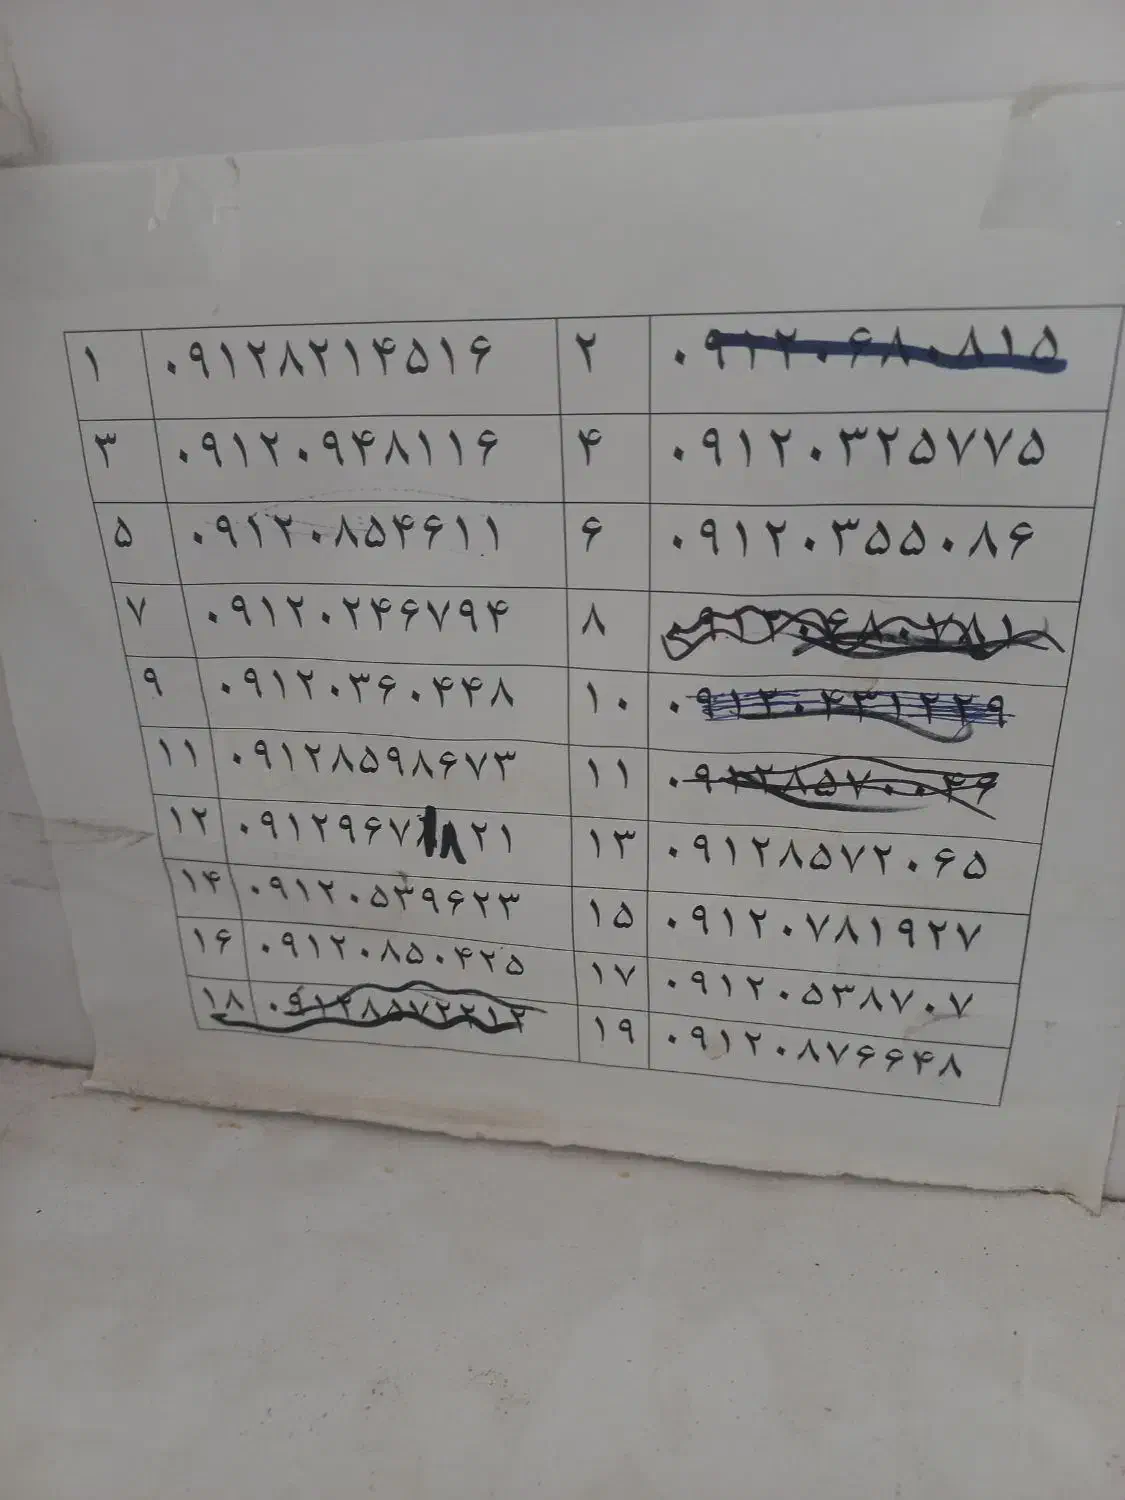 ۱ ۰۹۱۲۸۲۱۴۵۱۶ ۲ ۰۹۱۲۰۶۸۰۸۱۵
۳ ۰۹۱۲۰۹۴۸۱۱۶ ۴ ۰۹۱۲۰۳۲۵۷۷۵
۵ ۰۹۱۲۰۸۵۴۶۱۱ ۶ ۰۹۱۲۰۳۵۵۰۸۶
۷ ۰۹۱۲۰۲۴۶۷۹۴ ۸
۹ ۰۹۱۲۰۳۶۰۴۴۸ ۱۰
۱۱ ۰۹۱۲۸۵۹۸۶۷۳ ۱۱
۱۲ ۱۳ ۰۹۱۲۸۵۷۲۰۶۵
۱۴ ۰۹۱۲۰۵۳۹۶۲۳ ۱۵ ۰۹۱۲۰۷۸۱۹۲۷
۱۶ ۰۹۱۲۰۸۵۰۴۲۵ ۱۷ ۰۹۱۲۰۵۳۸۷۰۷
۱۸ ۱۹ ۰۹۱۲۰۸۷۶۶۴۸